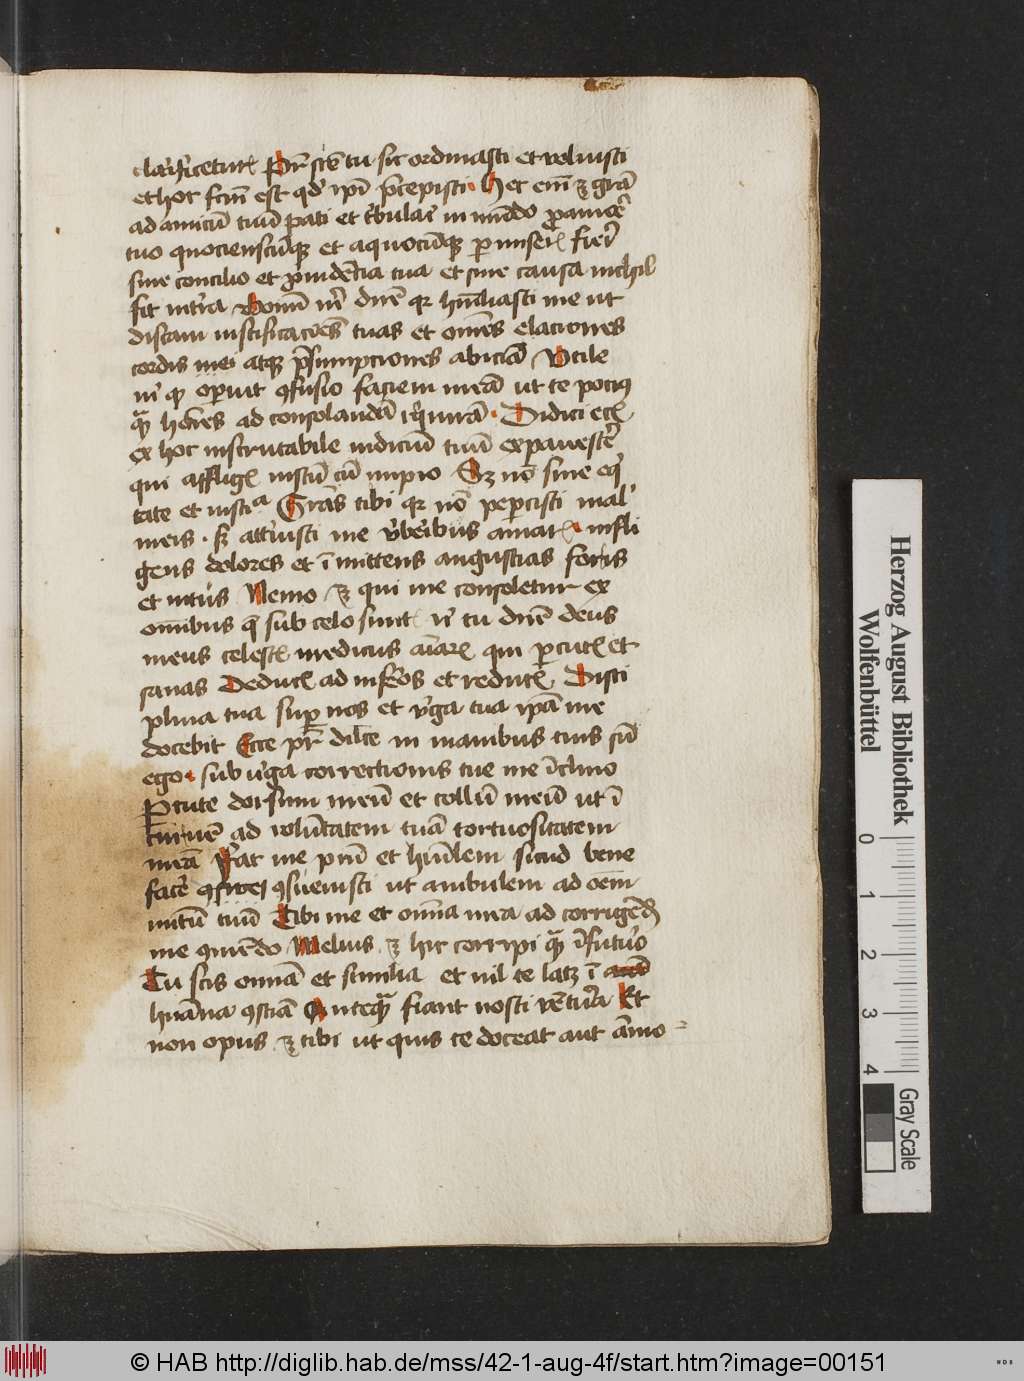 clarificetur Pr̄ scē tu sic ordinasti et voluisti
et hoc fcm̄ est qd̓ ip̄i p̄cepisti · Hec em̄ ꝫ grā
ad amicū tuū pati et t̓bulaī in mūdo ꝓ amōe
tuo quocienscūqꝫ et a quocūqꝫ ꝑmiser̄ fieī
sine concilio et ꝓuidēcia tua et sine causa nichil
fit in t̓ra Bonū m̄ dn̄e qr hūiliasti me ut
discam iustificacōes tuas et om̄es elaciones
cordis mei atqꝫ p̄sumpciones abiciā Utile
m̄ qꝫ oꝑuit ꝯfusio faciem meā ut te pocius
qꝫ̄ hoīes ad consolandū iq̄uirā · Didici eciā
ex hoc inscrutabile iudiciū tuū expauesc̄e
qui affligis iustū cū impio Sꝫ nō sine eq̓
tate et iusticᵃ Grās tibi qr nō peꝑcisti mal̓
meis · sꝫ att̓uisti me v̓beribus amaris · infli
gens dolores et īmittens angustias foris
et intus Nemo ꝫ qui me consoletur ex
omībus q̄ sub celo sunt n̓ tu dn̄e deus
meus celestis medicus aīarꝫ qui ꝑcutis et
sanas Deducis ad inferos et reducis Disci
plina tua suꝑ nos et v̓ga tua ip̄a me
docebit Ecce pr̄ dilc̄e in manibus tuis sū
ego · sub v̓ga correctionis tue me īclino
Ꝑcute dorsum meū et collū meū ut ī
curuē ad volūtatem tuā tortuositatem
meā Fac me piū et hūilem sicud bene
facē ꝯsueuisti ut ambulem ad oēm
nutū tuū Tibi me et om̄ia mea ad corrigēdū
me ꝯmēdo Melius ꝫ hic corripi qꝫ̄ ī futuro
Tu scis omīa et singula et nil te latꝫ ī
hūana ꝯsciā Anteqꝫ̄ fiant nosti vētura Et
non opus ꝫ tibi ut quis te doceat aut āmo
Herzog August Bibliothek
Wolfenbüttel
0 1 2 3 4
Gray Scale
© HAB http://diglib.hab.de/mss/42-1-aug-4f/start.htm?image=00151